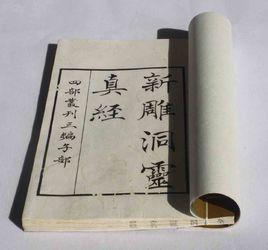 新雕洞靈
真經
四部叢刊三編子部